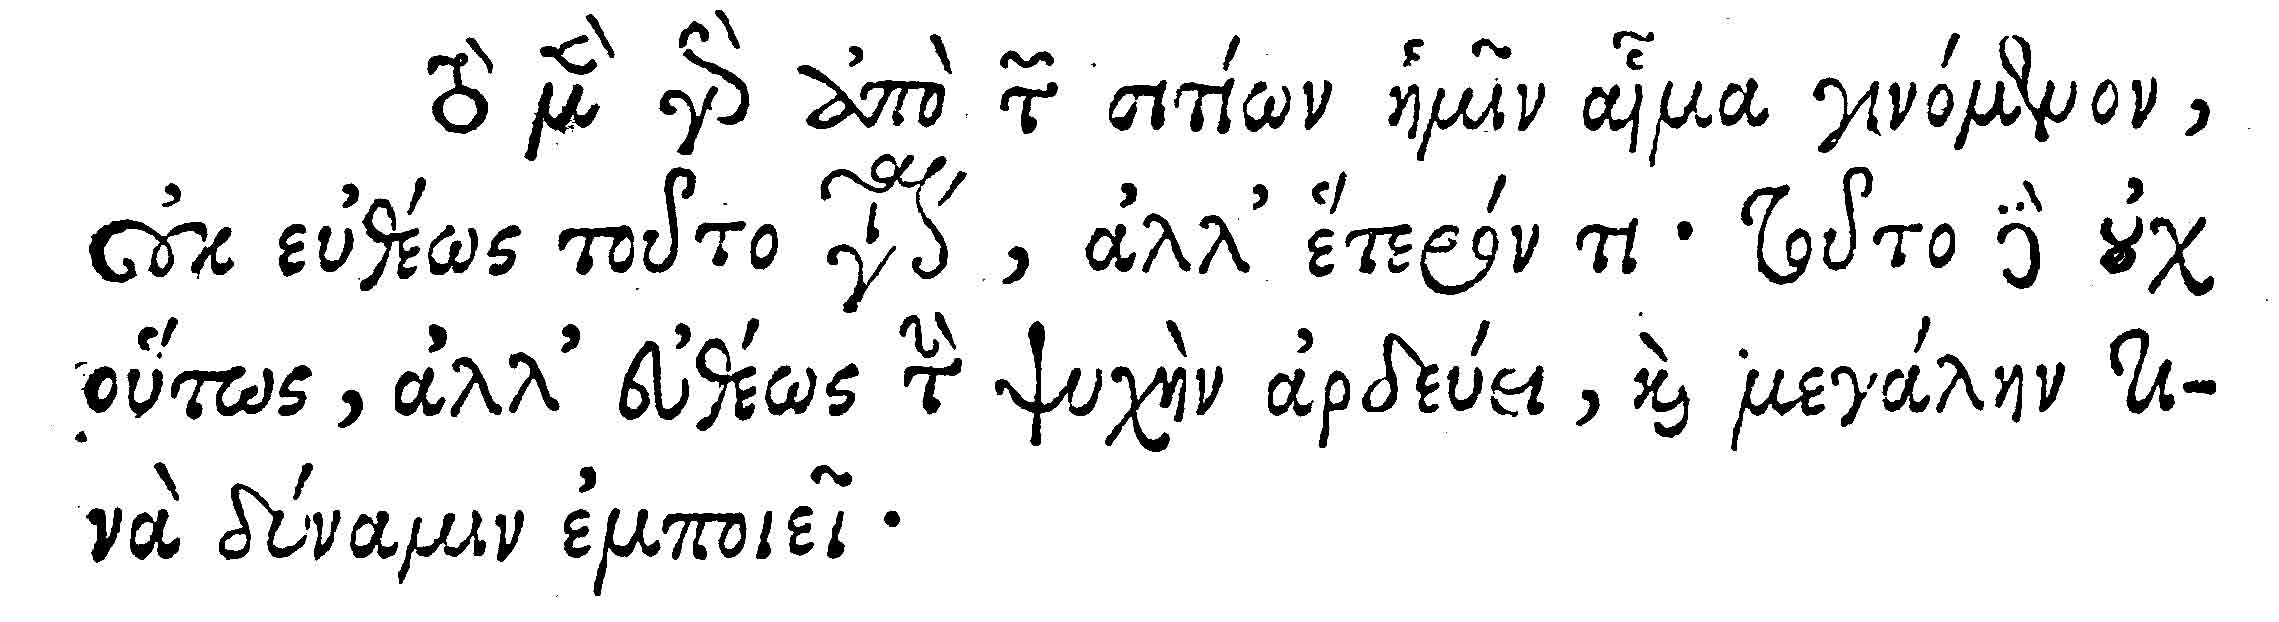 τὸ μὲν γὰρ ἀπὸ τῶν σιτίων ἡμῖν αἷμα γινόμενον,
οὐκ εὐθέως τοῦτο γίνεται, ἀλλ’ ἕτερόν τι· τοῦτο δὲ οὐχ
οὕτως, ἀλλ’ εὐθέως τὴν ψυχὴν ἀρδεύει, καὶ μεγάλην τι-
νὰ δύναμιν ἐμποιεῖ.